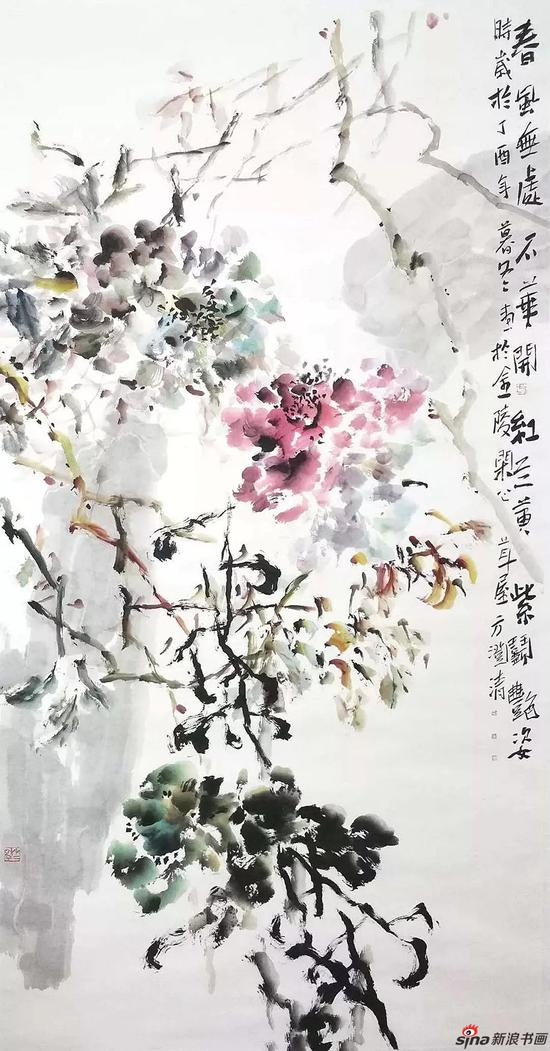 春風無處不華開紅兰黄紫鬪艷姿
時歲於丁酉年暮冬於金陵草屋方澄清
sina新浪书画